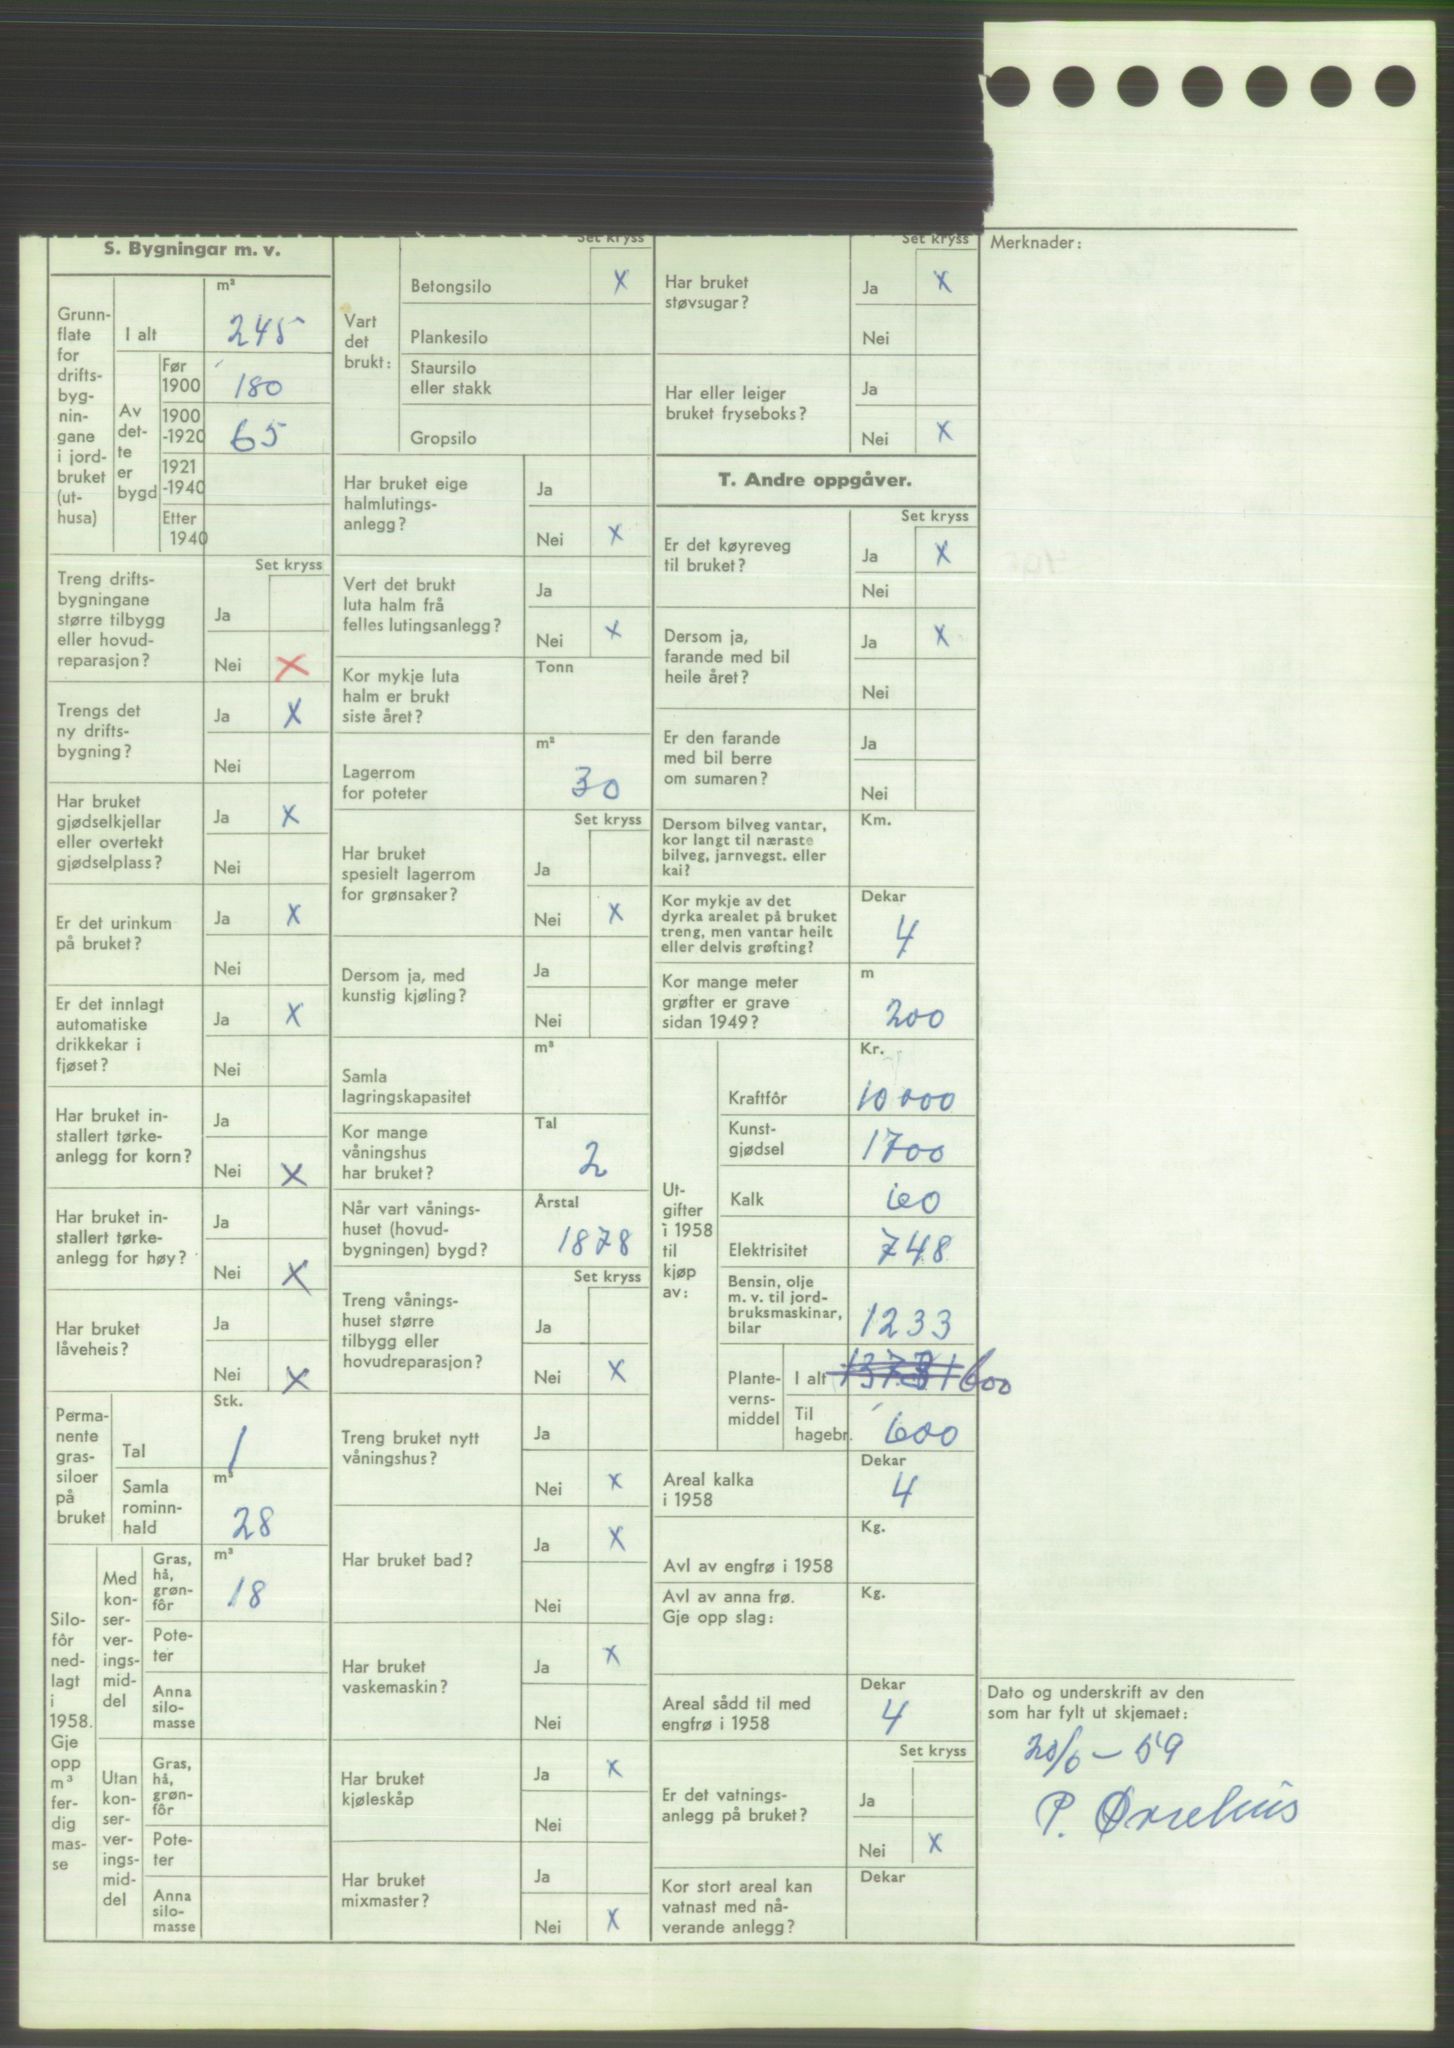 S. Bygningar m. v.
Grunn-
flate
for
drifts-
byg-
nin-
gane
i jord-
bruket
(ut-
husa)
m²
I alt 245
Av
det-
te
er
bygd
Før
1900 180
1900
-1920 65
1921
-1940
Etter
1940
Set kryss
Treng drifts-
bygningane
større tilbygg
eller hovud-
reparasjon?
Ja
Nei X
Trengs det
ny drifts-
bygning?
Ja X
Nei
Har bruket
gjødselkjellar
eller overtekt
gjødselplass?
Ja X
Nei
Er det urinkum
på bruket?
Ja X
Nei
Er det innlagt
automatiske
drikkekar i
fjøset?
Ja X
Nei
Har bruket in-
stallert tørke-
anlegg for korn?
Ja
Nei X
Har bruket in-
stallert tørke-
anlegg for høy?
Ja
Nei X
Har bruket
låveheis?
Ja
Nei X
Perma-
nente
gras-
siloer
på
bruket
Stk.
Tal 1
m³
Samla
rominn-
hald 28
Silo-
fôr
ned-
lagt
i
1958.
Gje
opp
m³
fer-
dig
mas-
se
Med
kon-
ser-
ver-
ings-
mid-
del
Gras,
hå,
grøn-
fôr
m³
18
Pote-
ter
Anna
silo-
masse
Utan
kon-
ser-
ver-
ings-
mid-
del
Gras,
hå,
grøn-
fôr
Pote-
ter
Anna
silo-
masse
Set kryss
Vart
det
brukt:
Betongsilo X
Plankesilo
Staursilo
eller stakk
Gropsilo
Har bruket eige
halmlutings-
anlegg?
Ja
Nei X
Vert det brukt
luta halm frå
felles lutingsanlegg?
Ja
Nei X
Kor mykje luta
halm er brukt
siste året?
Tonn
Lagerrom
for poteter
m²
30
Set kryss
Har bruket
spesielt lagerrom
for grønsaker?
Ja
Nei X
Dersom ja, med
kunstig kjøling?
Ja
Nei
Samla
lagringskapasitet
m³
Kor mange
våningshus
har bruket?
Tal
2
Når vart vånings-
huset (hovud-
bygningen) bygd?
Årstal
1878
Set kryss
Treng vånings-
huset større
tilbygg eller
hovudreparasjon?
Ja
Nei X
Treng bruket nytt
våningshus?
Ja
Nei X
Har bruket bad?
Ja X
Nei
Har bruket
vaskemaskin?
Ja X
Nei
Har bruket
kjøleskåp
Ja X
Nei
Har bruket
mixmaster?
Ja
Nei X
Set kryss
Har bruket
støvsugar?
Ja X
Nei
Har eller leiger
bruket fryseboks?
Ja
Nei X
T. Andre oppgåver.
Set kryss
Er det køyreveg
til bruket?
Ja X
Nei
Dersom ja,
farande med bil
heile året?
Ja X
Nei
Er den farande
med bil berre
om sumaren?
Ja
Nei
Dersom bilveg vantar,
kor langt til næraste
bilveg, jarnvegst. eller
kai?
Km.
Kor mykje av det
dyrka arealet på bruket
treng, men vantar heilt
eller delvis grøfting?
Dekar
4
Kor mange meter
grøfter er grave
sidan 1949?
m
200
Ut-
gifter
i 1958
til
kjøp
av:
Kr.
Kraftfôr 10 000
Kunst-
gjødsel 1700
Kalk 60
Elektrisitet 748
Bensin, olje
m. v. til jord-
bruksmaskinar,
bilar 1233
Plante-
verns-
middel
I alt 600
Til
hagebr. 600
Areal kalka
i 1958
Dekar
4
Avl av engfrø i 1958
Kg.
Avl av anna frø.
Gje opp slag:
Kg.
Areal sådd til med
engfrø i 1958
Dekar
4
Set kryss
Er det vatnings-
anlegg på bruket?
Ja
Nei X
Kor stort areal kan
vatnast med nå-
verande anlegg?
Dekar
Merknader:
Dato og underskrift av den
som har fylt ut skjemaet:
20/6 – 59
P.